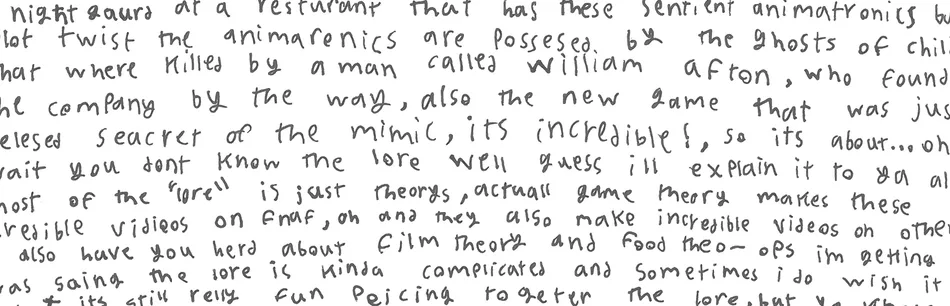 night gaurd at a resturant that has these sentient animatronics bu
lot twist the animarenics are possesed by the ghosts of chil
hat where killed by a man called william afton, who found
he company by the way, also the new game that was jus
elesed seacret of the mimic, its incredible!, so its about... oh
wait you dont know the lore well guess ill explain it to ya al
most of the "lore" is just theorys, actuall game theory makes these
credible vidieos on fnaf, oh and they also make incredible videos on othe
also have you herd about film theory and food theo- ops im getting
was saing the lore is kinda complicated and sometimes i do wish it
its still relly fun peicing togeter the lore, but